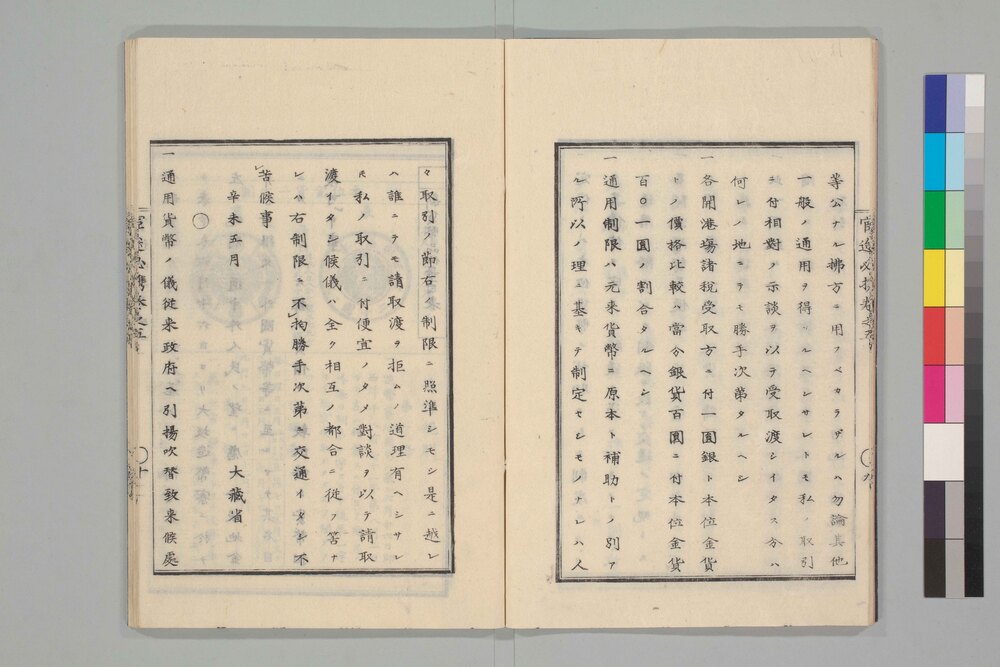 等公ナル拂方ニ用フベカラザルハ勿論其他
一般ノ通用ヲ得サルヘシサレトモ私ノ取引
ニ付相對ノ示談ヲ以テ受取渡シイタス分ハ
何レノ地ニテモ勝手次第タルヘシ
一各開港場諸税受取方ニ付一圓銀ト本位金貨
トノ價格比較ハ當分銀貨百圓ニ付本位金貨
百〇一圓ノ割合タルヘシ
一通用制限ハ元来貨幣ニ原本ト補助トノ別ア
ル所以ノ理ニ基キテ制定セシモノナレハ人
々取引ノ節右ノ制限ニ照準シモシ是ニ越レ
ハ誰ニテモ請取渡ヲ拒ムノ道理有ヘシサレ
𪜈私ノ取引ニ付便宜ノタメ對談ヲ以テ請取
渡イタシ候儀ハ全ク相互ノ都合ニ従フ筈ナ
レハ右制限ニ不拘勝手次第ニ交通イタシ不
苦候事
辛未五月 大藏省
〇
一通用貨幣ノ儀従来政府ヘ引揚吹替致来候處